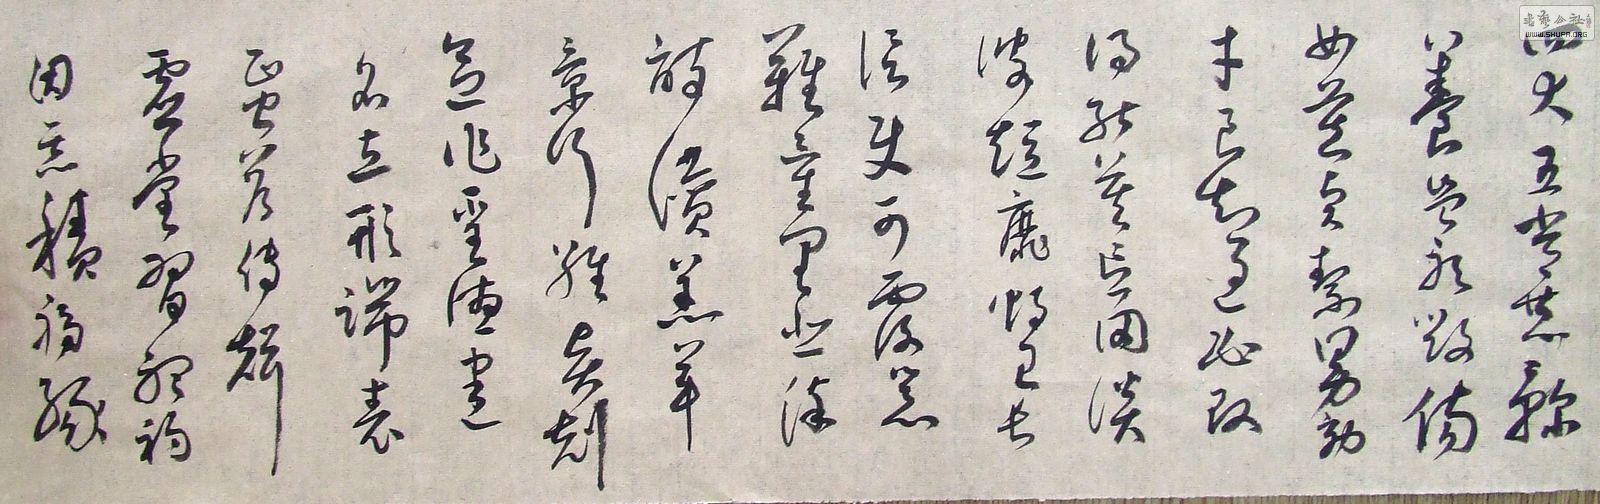 四大五常恭鞠
養豈敢毀傷
女慕貞潔男效
才良知過必改
得能莫忘罔談
彼短靡恃己長
信使可覆器
難量墨悲染
詩讚羔羊
景行維賢剋
念作聖德建
名立形端表
正空谷傳聲
虛堂習聽禍
因惡積福緣
書藝公社
WWW.SHUFA.ORG